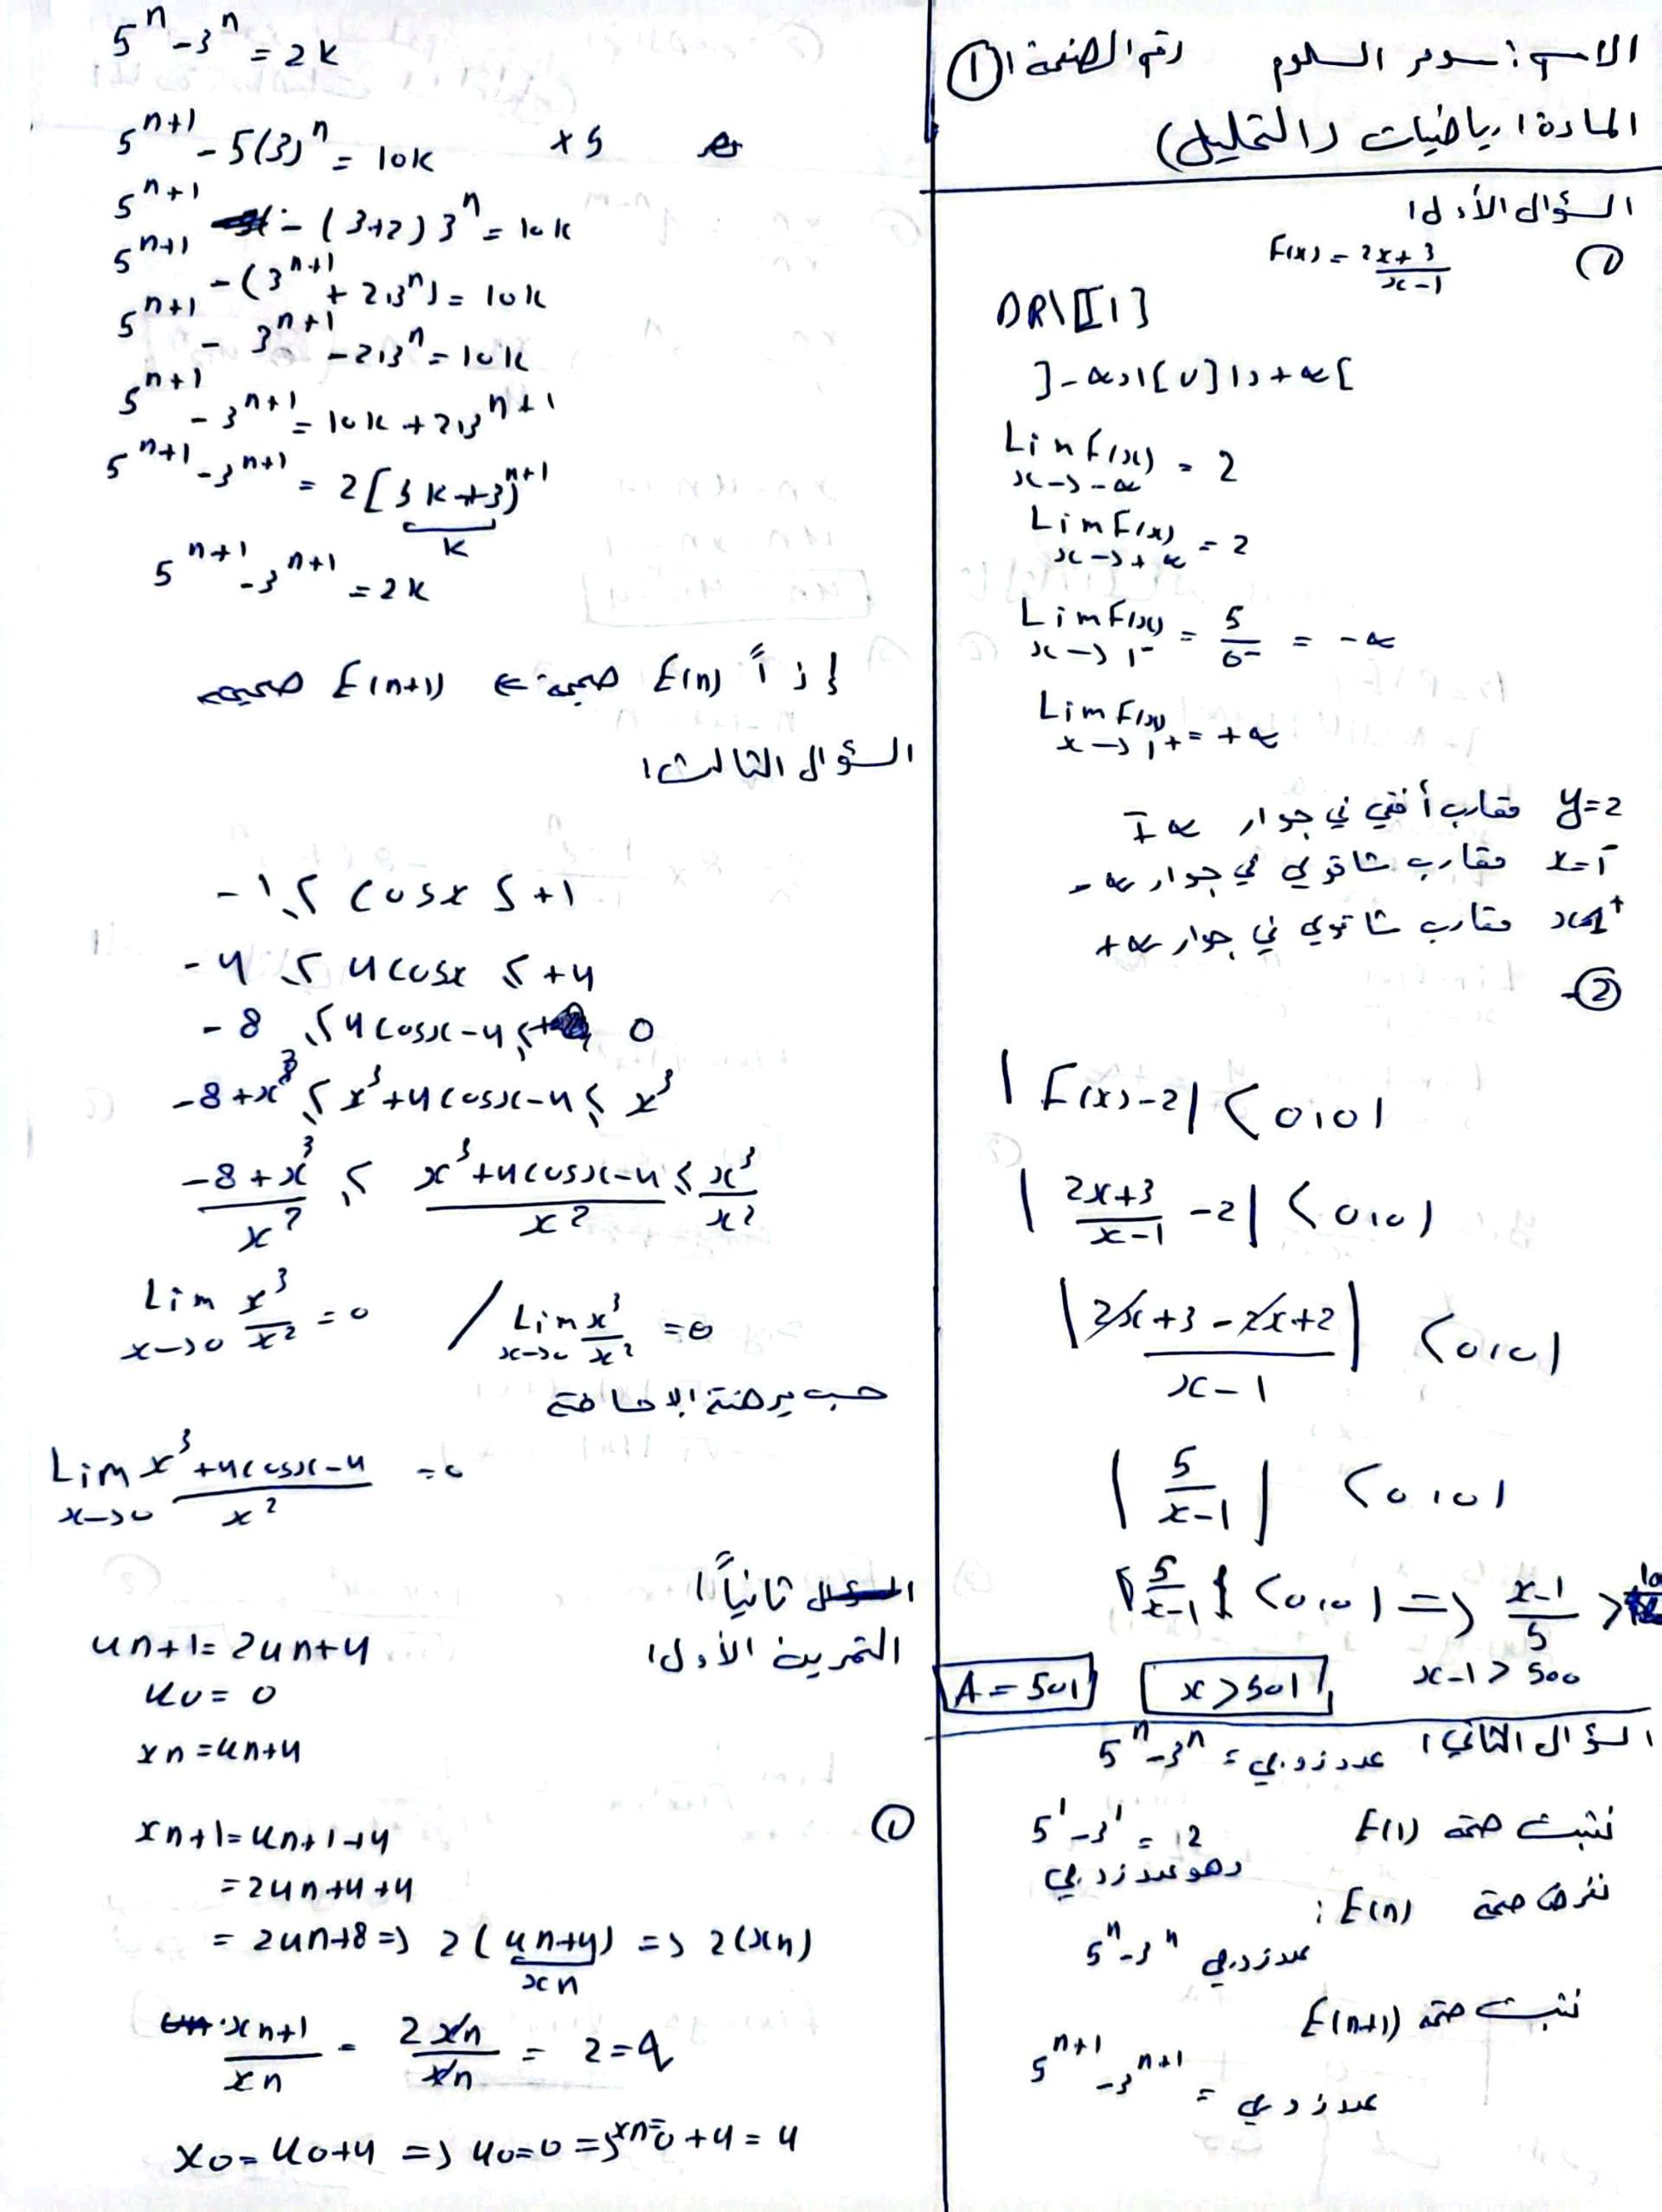 الاسم: سومر السلوم رقم الصفحة: ①
المادة: رياضيات (التحليل)
السؤال الأول:
① F(x) = \frac{2x+3}{x-1}
DR\{1}
]-∞,1[ U ]1,+∞[
Lim F(x) x→-∞ = 2
Lim F(x) x→+∞ = 2
Lim F(x) x→1⁻ = \frac{5}{0⁻} = -∞
Lim F(x) x→1⁺ = +∞
y=2 مقارب أفقي في جوار ∓∞
x=1⁻ مقارب شاقولي في جوار -∞
x=1⁺ مقارب شاقولي في جوار +∞
②
|F(x)-2| < 0,01
|\frac{2x+3}{x-1} -2| < 0,01
|\frac{2x+3-2x+2}{x-1}| < 0,01
|\frac{5}{x-1}| < 0,01
\frac{5}{x-1} < 0,01 => \frac{x-1}{5} >
x-1 > 500
x > 501
A = 501
السؤال الثاني:
5^n - 3^n = عدد زوجي
نثبت صحة E(1) 5^1 - 3^1 = 2
وهو عدد زوجي
نفرض صحة E(n) :
5^n - 3^n عدد زوجي
نثبت صحة E(n+1)
5^{n+1} - 3^{n+1} = عدد زوجي
5^n - 3^n = 2k
5^{n+1} - 5(3)^n = 10k ×5
5^{n+1} - (3+2) 3^n = 10k
5^{n+1} - (3^{n+1} + 2,3^n) = 10k
5^{n+1} - 3^{n+1} - 2,3^n = 10k
5^{n+1} - 3^{n+1} = 10k + 2,3^{n+1}
5^{n+1} - 3^{n+1} = 2[5k+3)^{n+1}
k
5^{n+1} - 3^{n+1} = 2k
إذاً E(n) صحيحة ← E(n+1) صحيحه
السؤال الثالث:
-1 ≤ cosx ≤ +1
-4 ≤ 4cosx ≤ +4
-8 ≤ 4cosx-4 ≤ 0
-8+x³ ≤ x³+4cosx-4 ≤ x³
\frac{-8+x³}{x²} ≤ \frac{x³+4cosx-4}{x²} ≤ \frac{x³}{x²}
Lim x→0 \frac{x³}{x²} = 0 / Lim x→0 \frac{x³}{x²} = 0
حسب برهنة الإحاطة
Lim x→0 \frac{x³+4cosx-4}{x²} = 0
ثانياً:
التمرين الأول:
un+1 = 2un+4
u0 = 0
xn = un+4
①
xn+1 = un+1+4
= 2un+4+4
= 2un+8 => 2(un+4) => 2(xn)
xn
\frac{xn+1}{xn} = \frac{2xn}{xn} = 2 = q
x0 = u0+4 => u0=0 => xn=0+4 = 4